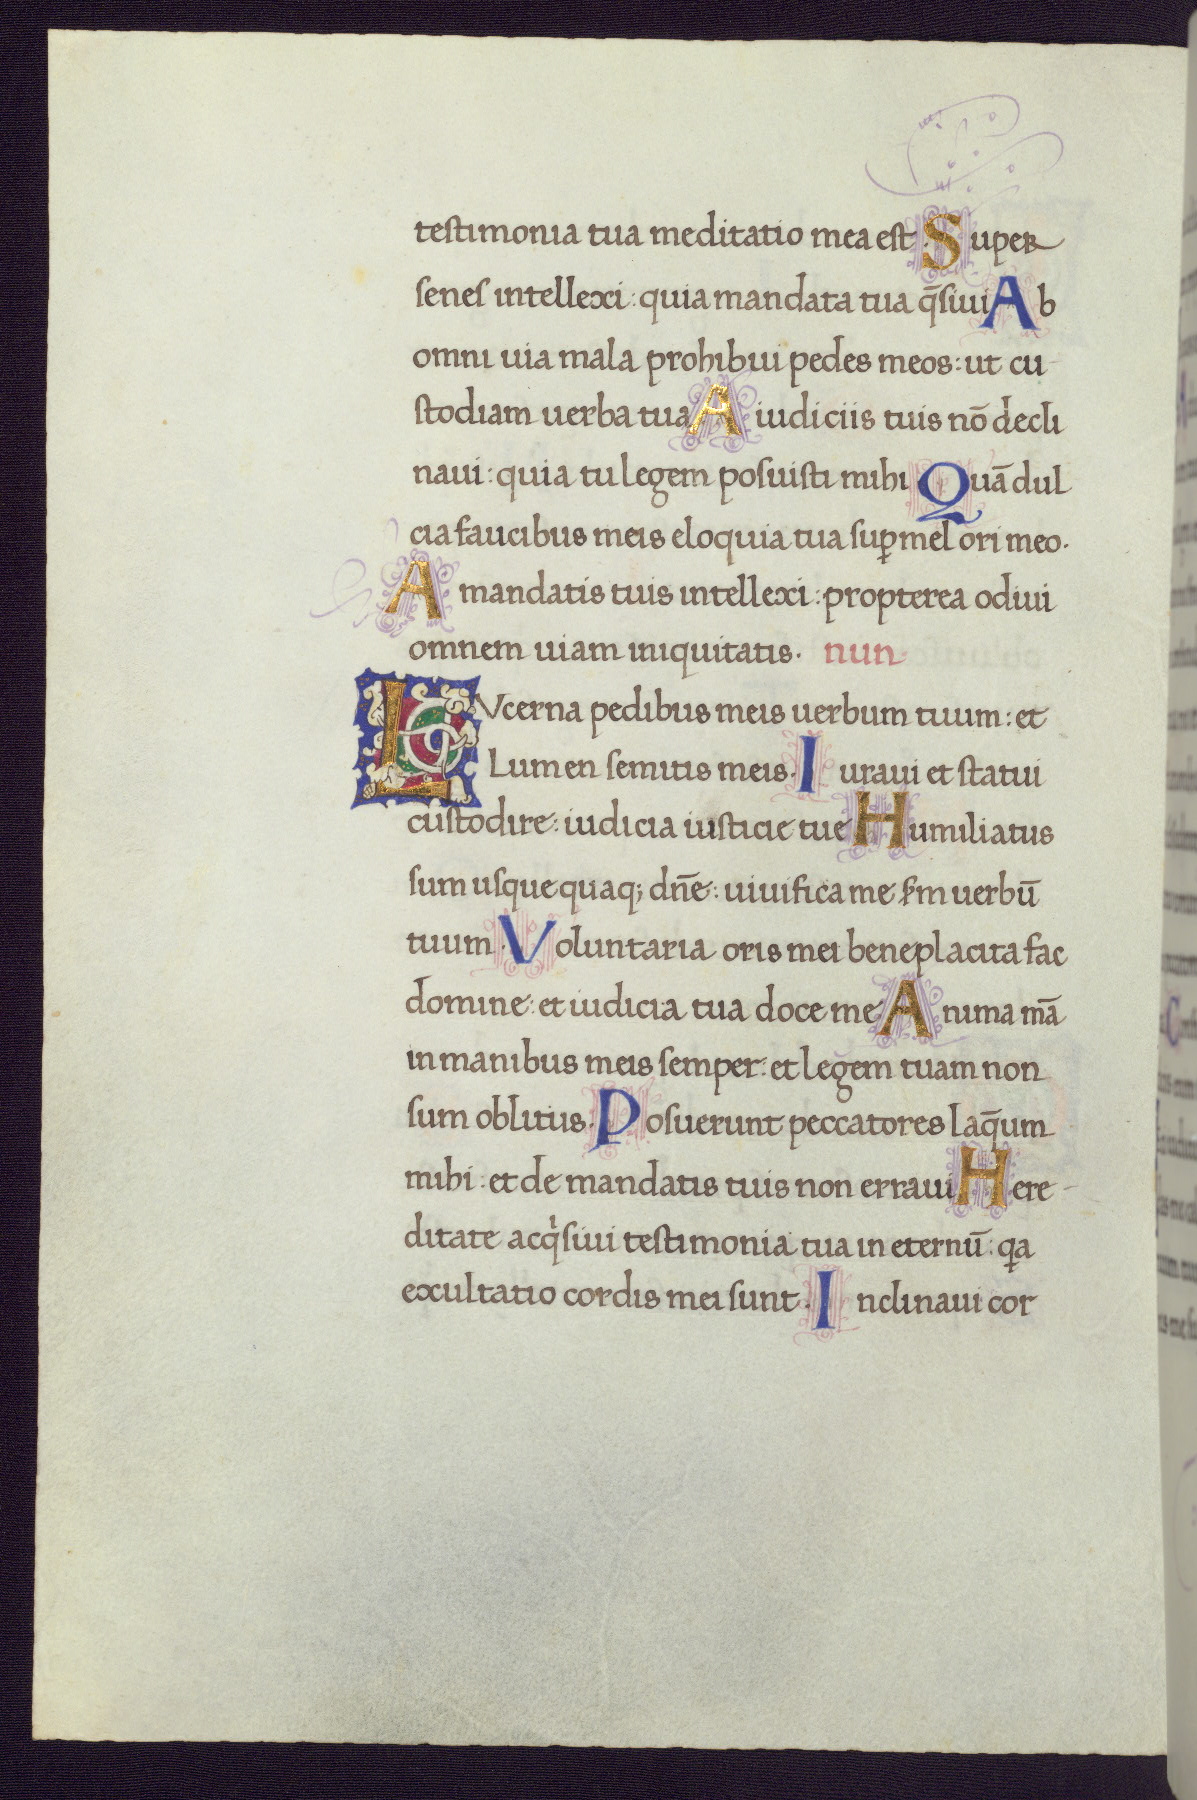 testimonia tua meditatio mea est. Super
senes intellexi: quia mandata tua q̄siui Ab
omni uia mala prohibui pedes meos: ut cu-
stodiam uerba tua A iudiciis tuis nō decli
naui: quia tu legem posuisti mihi Quā dul
cia faucibus meis eloquia tua sup̱ mel ori meo.
A mandatis tuis intellexi: propterea odiui
omnem uiam iniquitatis. nun.
LVcerna pedibus meis uerbum tuum: et
Lumen semitis meis. Iuraui et statui
custodire: iudicia iusticie tue Humiliatus
sum usque quaq; dn̄e: uiuifica me s̄m uerbū
tuum. Voluntaria oris mei beneplacita fac
domine: et iudicia tua doce me Anima mā
in manibus meis semper: et legem tuam non
sum oblitus. Posuerunt peccatores laq̄um
mihi: et de mandatis tuis non erraui Here-
ditate acqͥsiui testimonia tua in eternū: qa
exultatio cordis mei sunt. Inclinaui cor